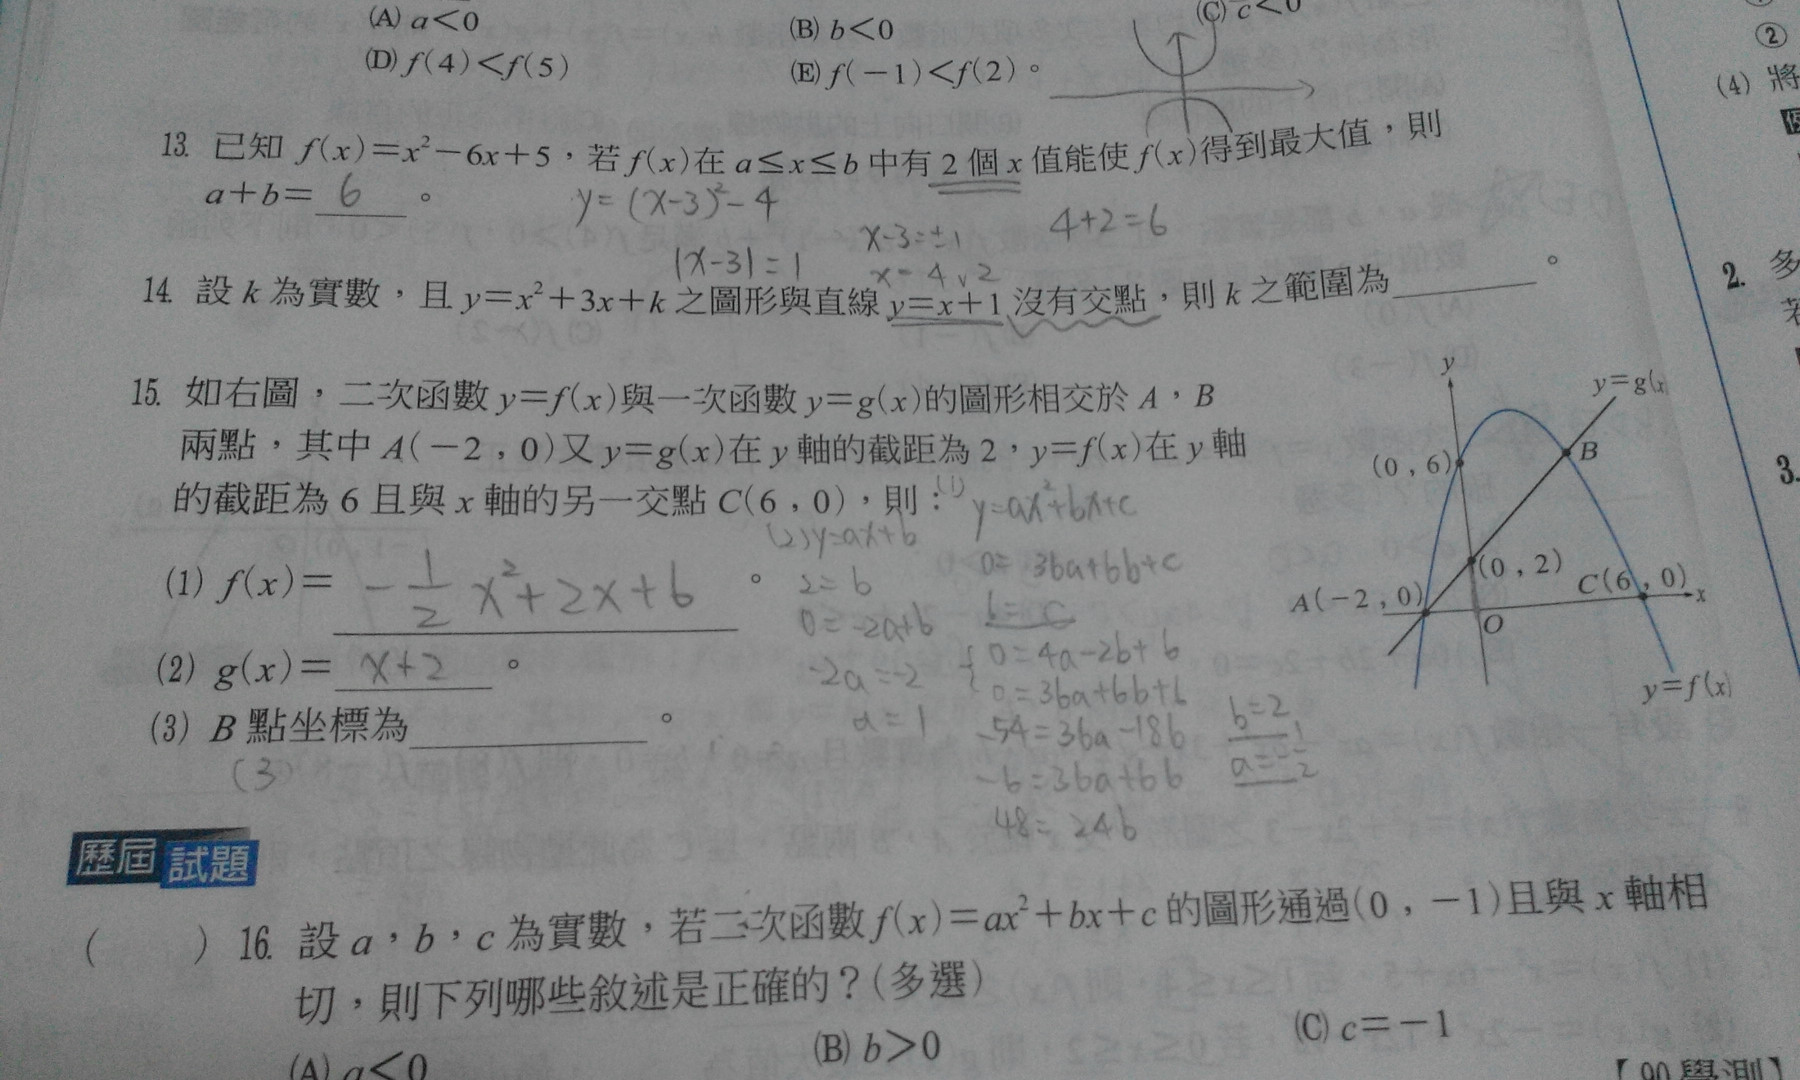 (A) a<0 (B) b<0 (C) c<0
(D) f(4)<f(5) (E) f(-1)<f(2)。
②
(4) 將
13. 已知 f(x)=x²-6x+5，若 f(x)在 a≤x≤b 中有 2 個 x 值能使 f(x)得到最大值，則
a+b= 6 。
y=(x-3)²-4
|x-3|=1
x-3=±1
x=4, 2
4+2=6
14. 設 k 為實數，且 y=x²+3x+k 之圖形與直線 y=x+1 沒有交點，則 k 之範圍為 。
15. 如右圖，二次函數 y=f(x)與一次函數 y=g(x)的圖形相交於 A，B
兩點，其中 A(-2，0)又 y=g(x)在 y 軸的截距為 2，y=f(x)在 y 軸
的截距為 6 且與 x 軸的另一交點 C(6，0)，則：
(1) y=ax²+bx+c
0=36a+6b+c
6=c
0=4a-2b+6
0=36a+6b+6
-54=36a-18b
-6=36a+6b
48=24b
b=2
a=-1/2
(2) y=ax+b
2=b
0=-2a+b
-2a=-2
a=1
(1) f(x)= -1/2 x²+2x+6 。
(2) g(x)= x+2 。
(3) B 點坐標為 。
(3)
y
y=g(x
(0，6)
B
(0，2)
C(6，0)
x
A(-2，0)
O
y=f(x)
2. 多
3.
歷屆試題
( ) 16. 設 a，b，c 為實數，若二次函數 f(x)=ax²+bx+c 的圖形通過(0，-1)且與 x 軸相
切，則下列哪些敘述是正確的？(多選)
(A) a<0 (B) b>0 (C) c=-1
【90 學測】